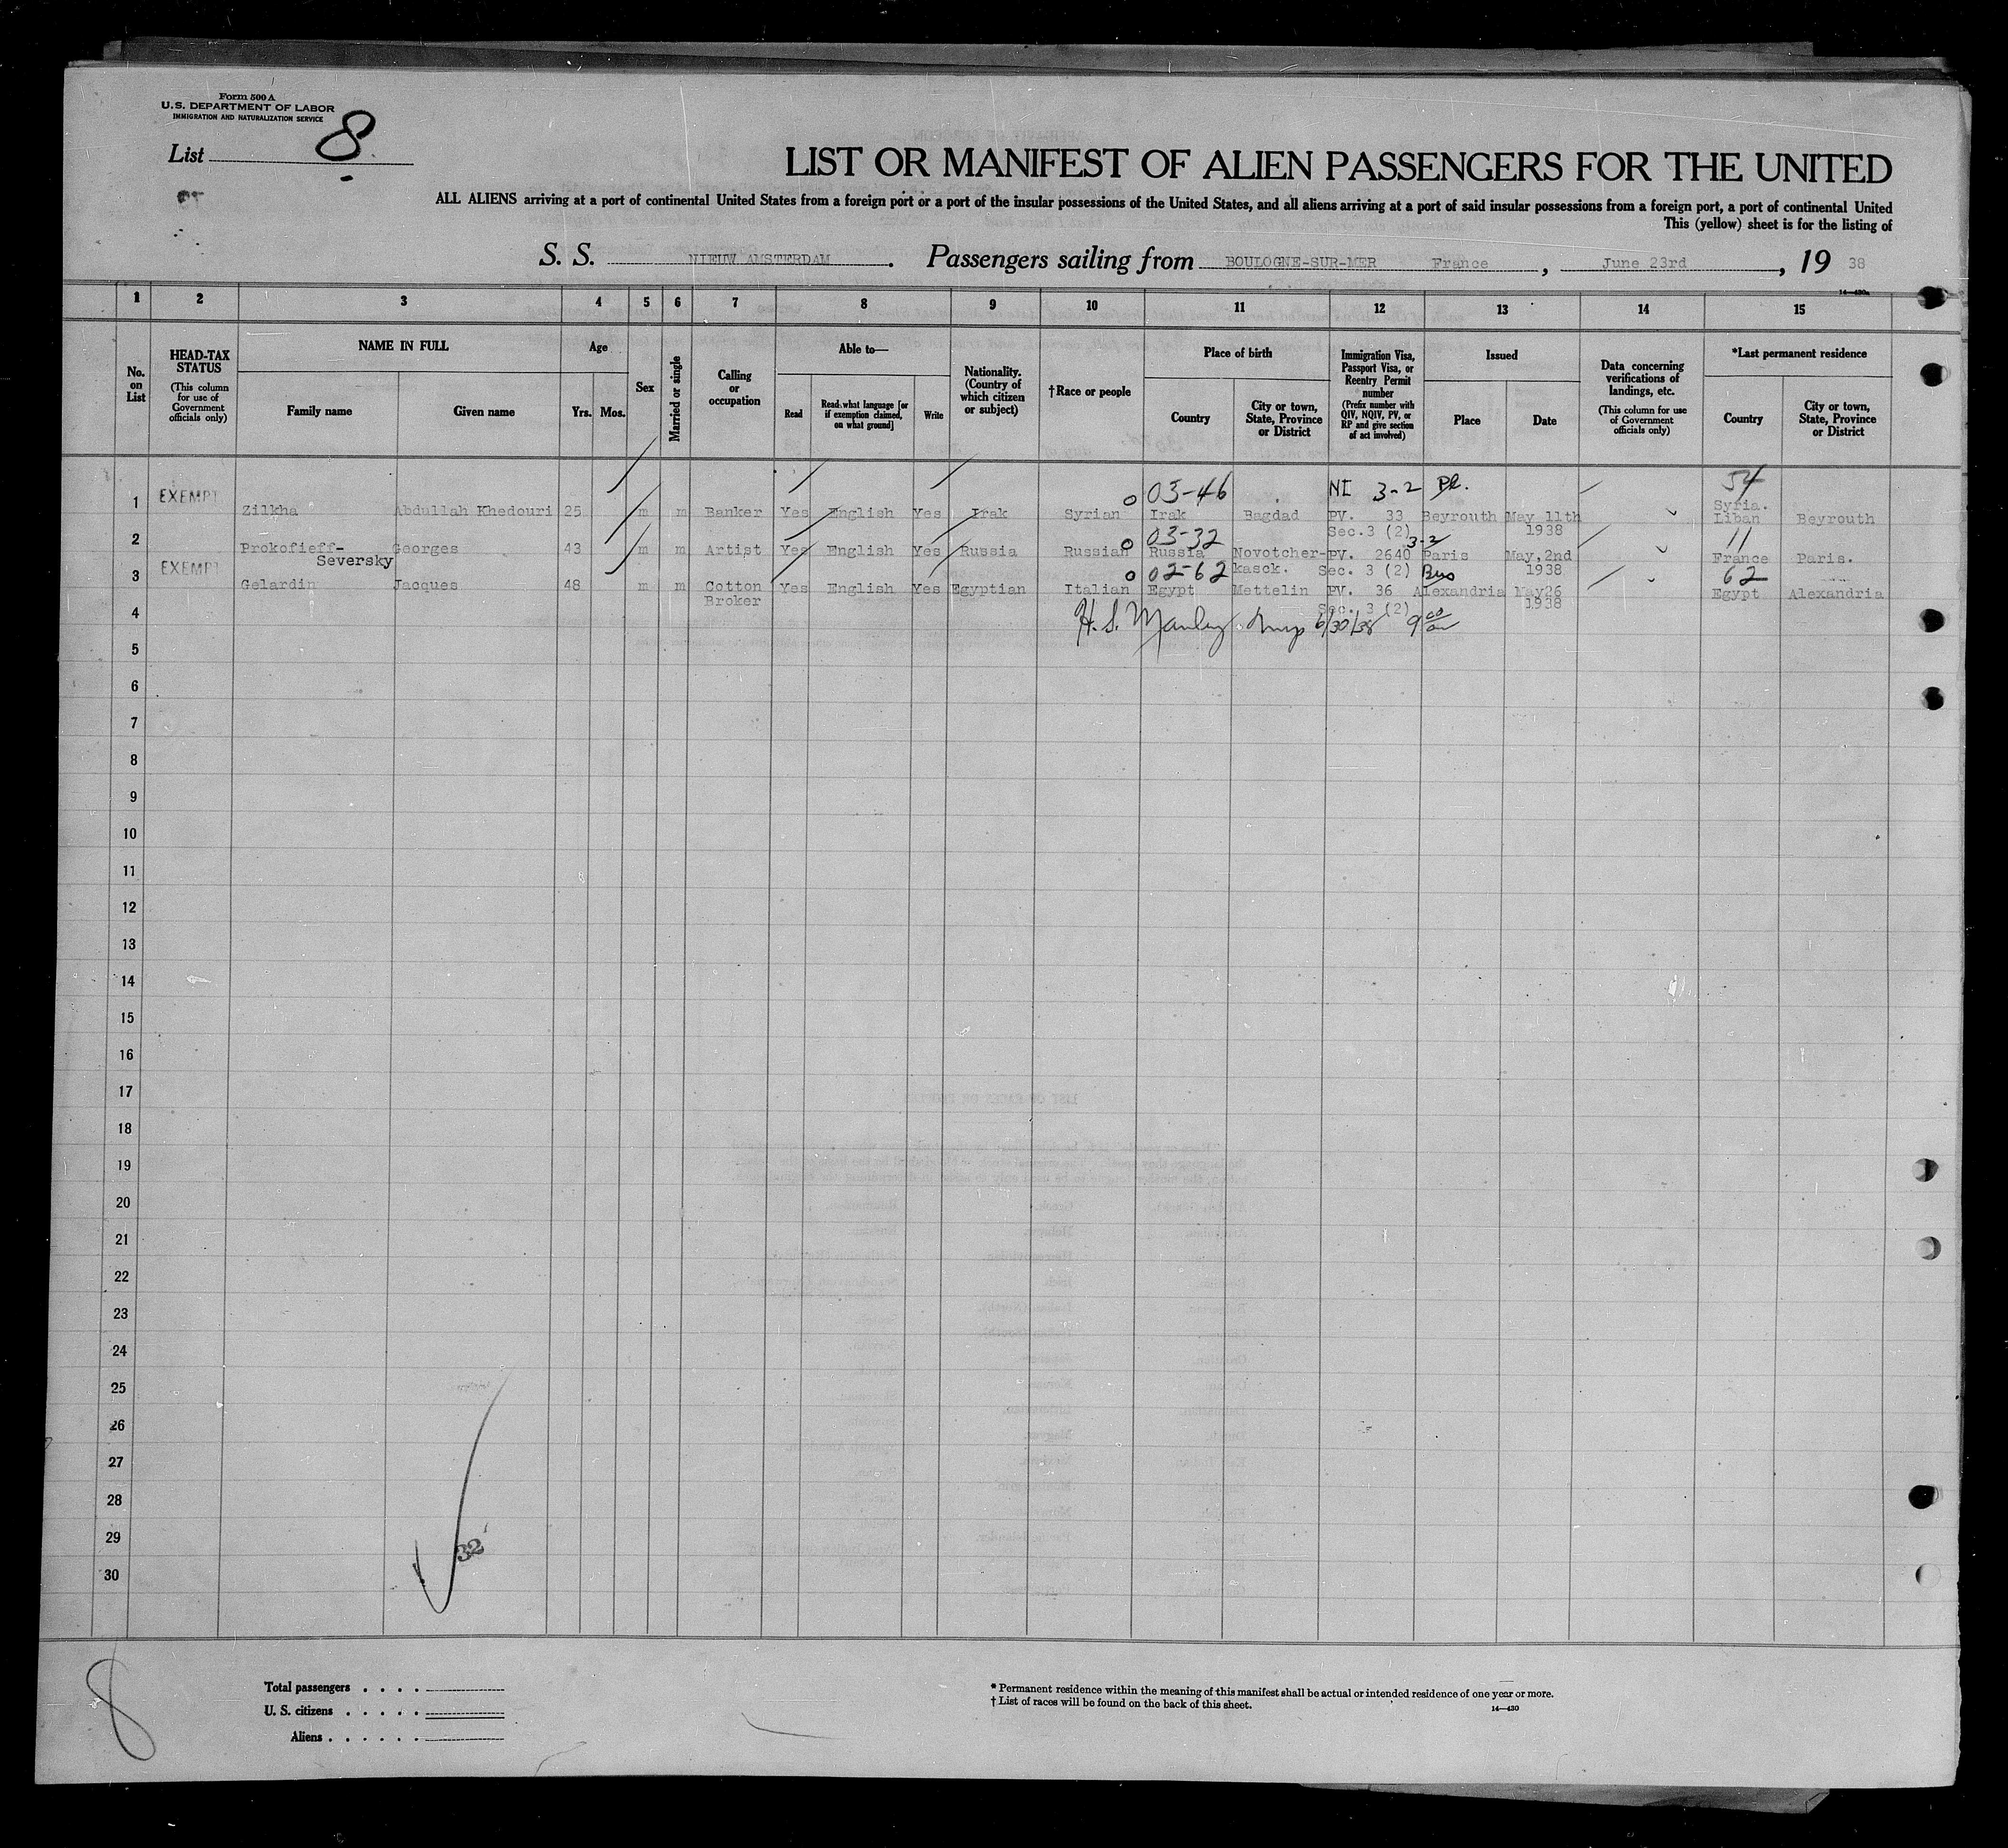 Form 500 A
U.S. DEPARTMENT OF LABOR
IMMIGRATION AND NATURALIZATION SERVICE
List 8
LIST OR MANIFEST OF ALIEN PASSENGERS FOR THE UNITED
ALL ALIENS arriving at a port of continental United States from a foreign port or a port of the insular possessions of the United States, and all aliens arriving at a port of said insular possessions from a foreign port, a port of continental United
This (yellow) sheet is for the listing of
S. S. NIEUW AMSTERDAM. Passengers sailing from BOULOGNE-SUR-MER France, June 23rd, 19 38
14—430a
1 2 3 4 5 6 7 8 9 10 11 12 13 14 15
No. on List
HEAD-TAX STATUS (This column for use of Government officials only)
NAME IN FULL
Family name Given name
Age
Yrs. Mos.
Sex
Married or single
Calling or occupation
Able to—
Read Read what language [or if exemption claimed, on what ground] Write
Nationality. (Country of which citizen or subject)
†Race or people
Place of birth
Country City or town, State, Province or District
Immigration Visa, Passport Visa, or Reentry Permit number (Prefix number with QIV, NQIV, PV, or RP and give section of act involved)
Issued
Place Date
Data concerning verifications of landings, etc. (This column for use of Government officials only)
*Last permanent residence
Country City or town, State, Province or District
03-46 NI 3-2 54
1 EXEMPT Zilkha Abdullah Khedouri 25 m m Banker Yes English Yes Irak Syrian Irak Bagdad PV. 33 Beyrouth May 11th Syria. Liban Beyrouth
Sec.3 (2) 1938
03-32 3-2 11
2 Prokofieff-Seversky Georges 43 m m Artist Yes English Yes Russia Russian Russia Novotcher-kasck. PV. 2640 Paris May,2nd France Paris.
Sec. 3 (2) 1938
02-62 Bus 62
3 EXEMPT Gelardin Jacques 48 m m Cotton Broker Yes English Yes Egyptian Italian Egypt Mettelin PV. 36 Alexandria May26 Egypt Alexandria
Sec. 3 (2) 1938
4 H. S. Manley Insp 6/30/38 9
5
6
7
8
9
10
11
12
13
14
15
16
17
18
19
20
21
22
23
24
25
26
27
28
29
30
32
8
Total passengers . . . .
U. S. citizens . . . . .
Aliens . . . . . .
* Permanent residence within the meaning of this manifest shall be actual or intended residence of one year or more.
† List of races will be found on the back of this sheet.
14—430